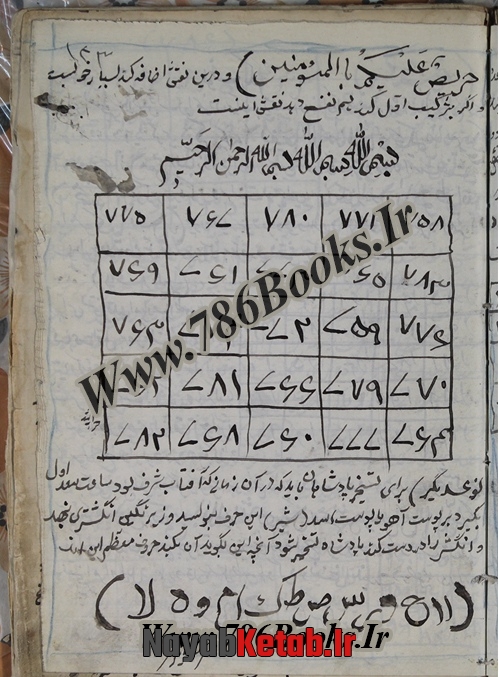 حریص علیکم باالمومنین) و درین نقش اضافه کند بسیار خوبست
و اگر بترکیب اول کند هم نفع دهد نقش اینست
بسم الله بسم الله بسم الله الرحمن الرحیم
۷۷۵ ۷۶۷ ۷۸۰ ۷۷۱ ۷۵۸
۷۶۹ ۷۶۱ ۷۶۵ ۷۸۳
۷۶۳ ۷۷۲ ۷۵۹ ۷۷۶
۷۸۱ ۷۶۶ ۷۷۹ ۷۷۰
۷۸۲ ۷۶۸ ۷۶۰ ۷۷۷ ۷۶۴
نوعدیگر) برای تسخیر پادشاهان باید که در آن زمانی که آفتاب بشرف بود ساعت سعد اول
بگیرد بر پوست آهو یا پوست اسد (شیر) این حرف بنویسد و زیر نگین انگشتری نهد
و انگشتر را در دست کند پادشاه تسخیر شود آنچه این گوید آن کند حرف معظم این است
Www.786Books.Ir
Www.786Books.Ir
NayabKetab.Ir